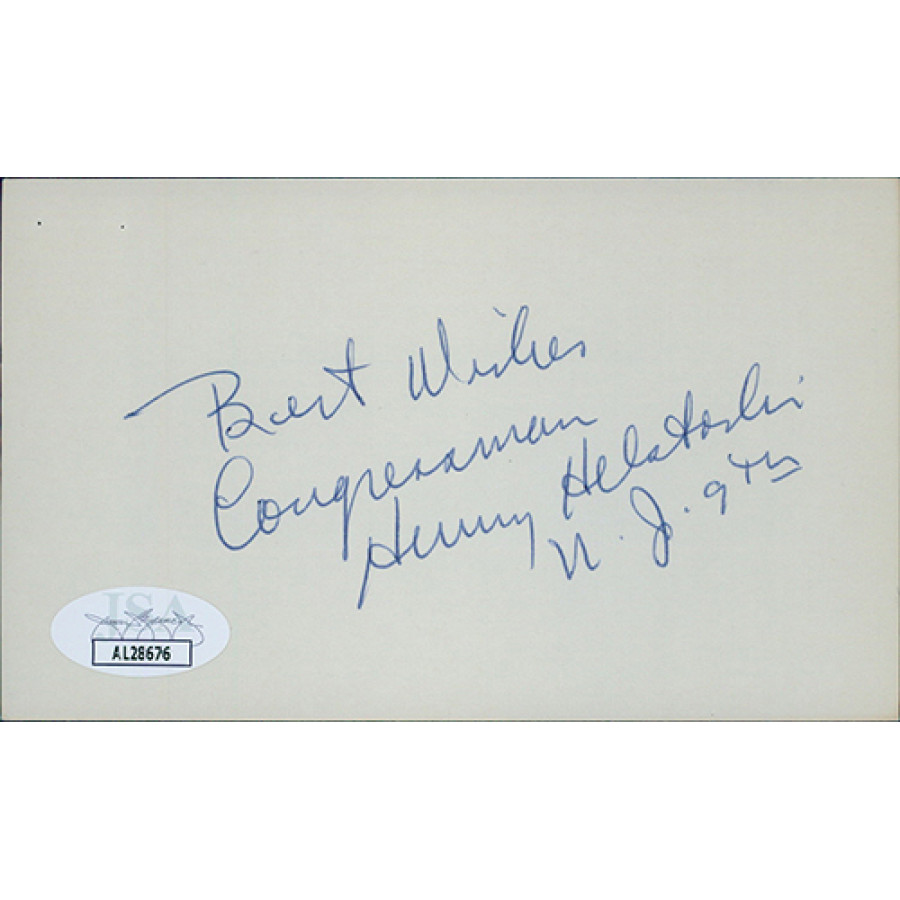 Best Wishes
Congressman
Henry Helstoski
N.J. 9th
JSA
AL28676